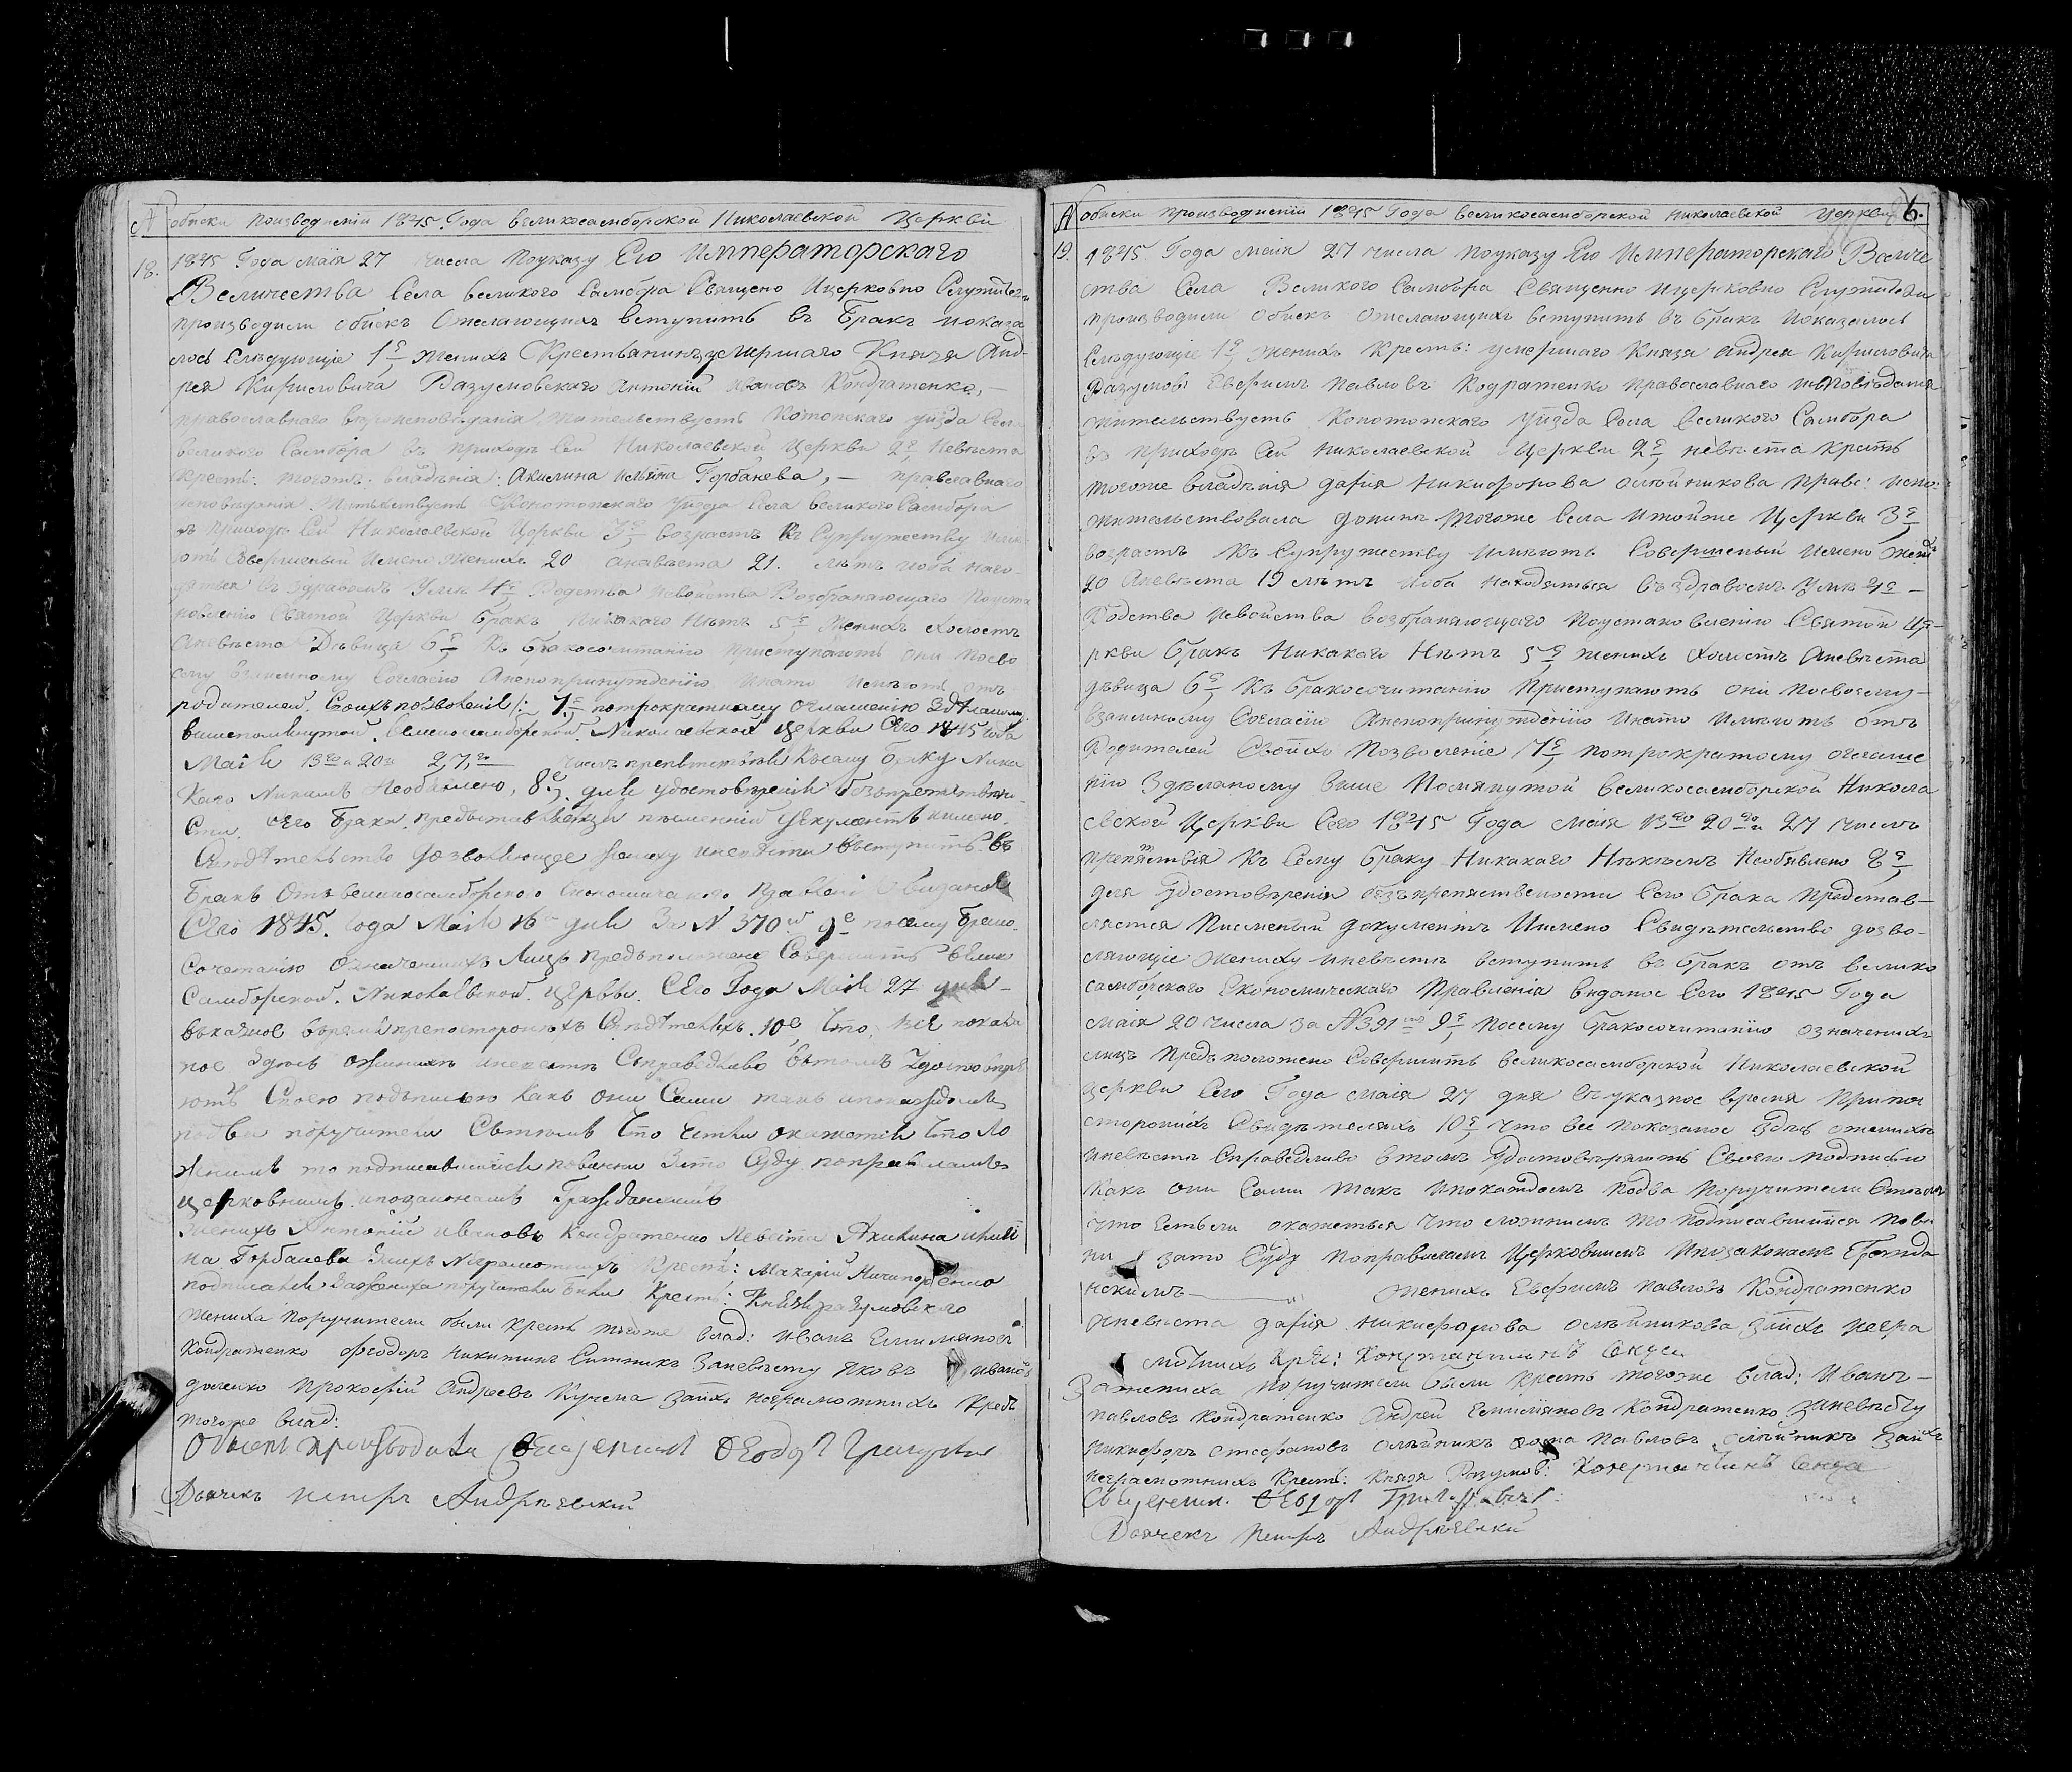 обиски поизводнении 1845 Года великосамборской Николаевской Церкви
18. 1845 Года маія 27 числа поуказу Его Императорскаго
Величества Села великого Самбора Священо Ицерковно Служители
производили обискъ Ожелающихъ вступить въ Бракъ иоказа
лось Слѣдующіе 1е женихъ Крестьянинъ умершаго Князя Анд-
рея Кириловича Разумовскаго Антоній ивановъ Кондратенко,
православнаго вѣроисповѣданія жительствуетъ Котопскаго уѣзда Села
великого Самбора въ приходѣ Сей Николаевской Церкви 2е Невѣста
крест: тогожъ владѣнія: Акилина Горбанева, — православнаго
исповѣданія жительствуетъ Конотопскаго уѣзда Села великого Самбора
въ приходѣ Сей Николаевской Церкви 3е возрастъ къ Супружеству име
ютъ Совершеный Имено женихъ 20 аневѣста 21. лѣтъ иоба нахо-
дяться въ здравомъ умѣ 4е Родства исвойства Возбраняющаго поуста
новленію Святой Церкви бракъ никакаго Нѣтъ 5е женихъ холостъ
Аневѣста Дѣвица 6е къ бракосочитанію приступаютъ они посво
ему взаимному Согласію Анепопринужденію инато имѣютъ отъ
родителей Своихъ позволеніе 7е потрократному оглашенію здѣланому
вишепомянутой Николаевской церкви Сего 1845 года
Маія 13го 20го 27го числъ препятствія ксему браку Ника
каго Никимъ Необявлено, 8е, для удостовѣренія безпрепятствено
сти Сего брака представляется документъ имено
Свидѣтельство дозволяющее жениху иневѣсти вступить въ
Бракъ Отъ великосамборского Економическаго правленія
Сего 1845. года Маія 16 дня За N 370м 9е посему брако
Сочетанію Означенихъ Лицъ предположено Совершить вВелик
Самборской Николаевской церкви Сего Года Маія 27 дня
въказное время при посторонихъ Свидѣтеляхъ. 10е Что все показа
ное здѣсь оженихѣ иневѣстѣ Справедливо втомъ Удостовѣря
ютъ Своею подписью какъ они Сами такъ ипокаждомъ
подва поручители Стѣмъ Что Окажется Что Ло
жнимъ то подписавшіися повинни Зато Суду поправиламъ
церковнимъ Гражданскимъ
женихъ Антоній ивановъ Кондратенко Невѣста Акилина
на Горбанева Зныхъ Неграмотныхъ Крест: Макарій Ничипоренко
подписался Крест: Князя разумовского
жениха поручители были крест тогоже влад: иванъ Емилияновъ
Кондратенко феодоръ никитинъ Ситникъ Заневѣсту яковъ ивановъ
прокофій Андреевъ Кучема заихъ неграмотнихъ Крест
тогоже влад:
Обискъ производили Священникъ Феодоръ
Дьячекъ петръ Андрѣевскій
обиски производнении 1845 Года великосамборской николаевской церкви 6.
19. 1845 Года маія 27 числа поуказу Его Императорскаго Величе
ства Села Великого Самбора Священно ицерковно Служители
производили обискъ ожелающихъ вступить въ бракъ иоказалось
Слѣдующіе 1е женихъ Крестъ: умершаго Князя Андрея Кириловича
Разумов: Евфимъ павловъ Кодратенко православнаго исповѣданія
жительствуетъ Конотопскаго уѣзда Села великого Самбора
въ приходѣ Сей Николаевской Церкви 2е невѣста крест
тогоже владѣнія дарія Никифорова олѣйникова правс: испо:
жительствовала донинѣ тогоже Села итойже Церкви 3е
возрастъ къ Супружеству имѣютъ Совершеный имено жених
20 Аневѣста 19 лѣтъ иоба находяться въздравомъ умѣ 4е —
Родства исвойства возбраняющаго поустановленію Святой Це-
ркви бракъ Никакаго Нѣтъ 5е женихъ холостъ Аневѣста
дѣвица 6е къ бракосочитанію приступаютъ они посвоему-
взаимному Согласію Анепопринужденію инато имѣютъ отъ
Родителей Своихъ позволеніе 7е потрократному оглаше
нію Здѣланому више Помянутой великосамборской Никола
евской Церкви Сего 1845 Года маія 13го 20го и 27 числъ
препятствія къ Сему браку Никакаго Нѣкимъ Необявлено 8е
для удостовѣренія безпрепятствености Сего брака представ-
ляется Писменый документъ Имено Свидѣтельство дозво-
ляющіе жениху иневѣстѣ вступить въ бракъ отъ велико
самборскаго Економическаго Правленія виданое Сего 1845 Года
маія 20 числа за N391мъ 9е посему бракосочитанію означенихъ
лицъ предъположено Совершить великосамборской Николаевской
церкви Сего Года маія 27 дня въуказное время при по
сторонихъ Свидѣтеляхъ 10е что все показаное здѣсь оженихѣ
иневѣстѣ Справедливо втомъ Удостовѣряютъ Своею подписью
какъ они Сами такъ ипокаждомъ подва поручители Стѣмъ
что Естьли окажеться что ложнимъ то подписавшіися пови
ни зато Суду поправиламъ Церковнимъ ипозаконамъ Гражда
нскимъ женихъ Евфимъ павловъ Кондратенко
Аневѣста дарія никифорова олѣйникова заихъ негра
мотнихъ Кре: Константинъ
Зажениха поручители были крест тогоже влад: Иванъ-
павловъ Кондратенко Андрей Емилияновъ Кондратенко Заневѣсту
никифоръ стефановъ олѣйникъ фома павловъ олѣйникъ Заихъ
неграмотнихъ Крест: Князя Разумов: Константинъ
Священник Феодоръ
Дьячекъ петръ Андрѣевскій